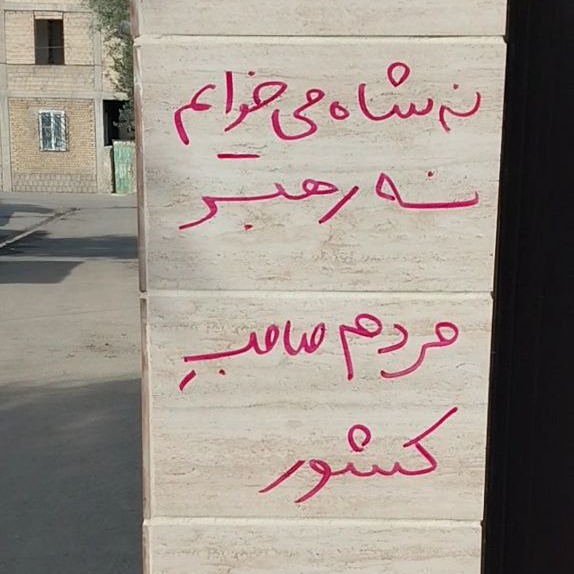 نه شاه می‌خوایم
نه رهبر
مردم صاحبِ
کشور